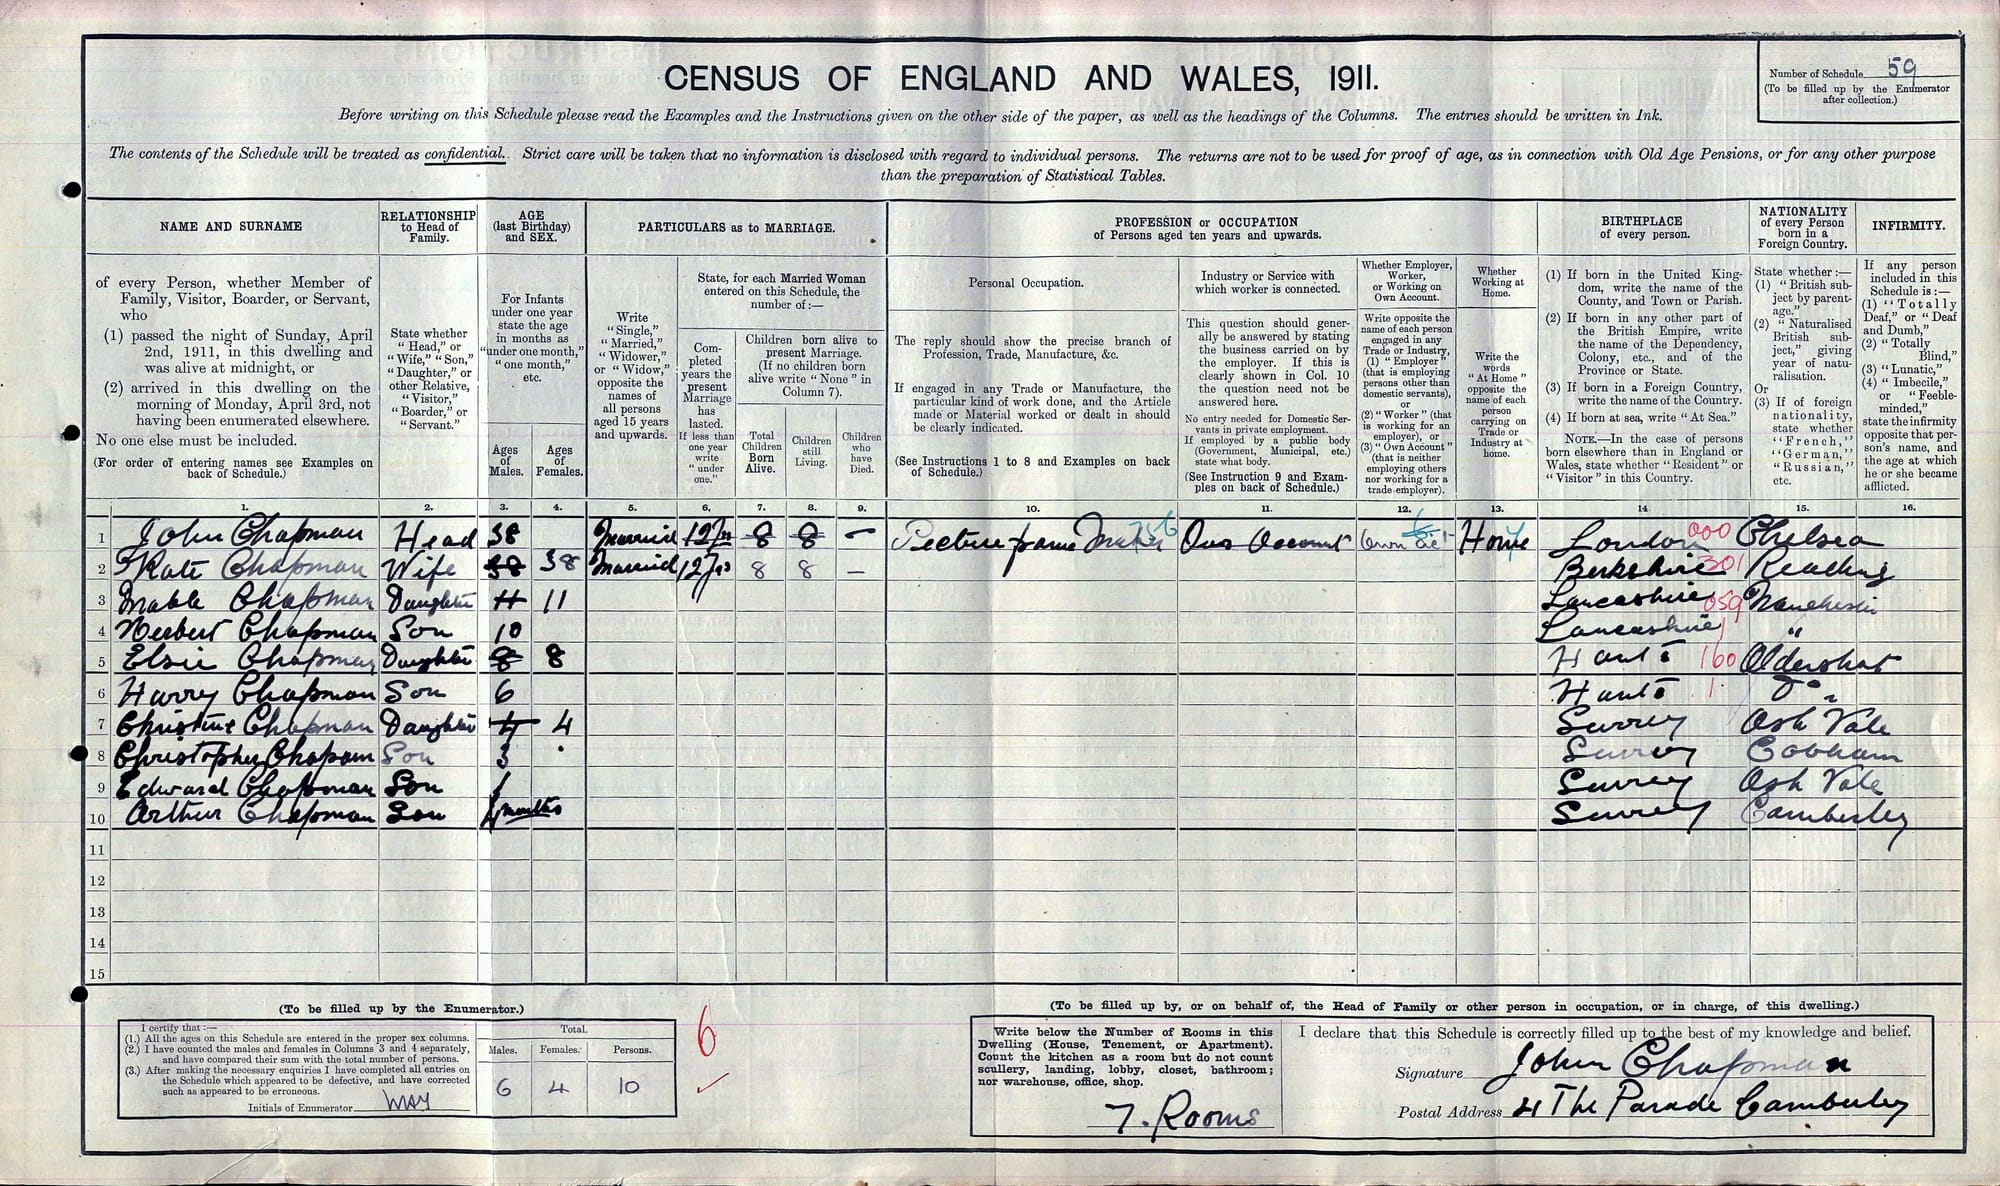 CENSUS OF ENGLAND AND WALES, 1911.
Number of Schedule 59
(To be filled up by the Enumerator
after collection.)
Before writing on this Schedule please read the Examples and the Instructions given on the other side of the paper, as well as the headings of the Columns. The entries should be written in Ink.
The contents of the Schedule will be treated as confidential. Strict care will be taken that no information is disclosed with regard to individual persons. The returns are not to be used for proof of age, as in connection with Old Age Pensions, or for any other purpose
than the preparation of Statistical Tables.
NAME AND SURNAME
of every Person, whether Member of
Family, Visitor, Boarder, or Servant,
who
(1) passed the night of Sunday, April
2nd, 1911, in this dwelling and
was alive at midnight, or
(2) arrived in this dwelling on the
morning of Monday, April 3rd, not
having been enumerated elsewhere.
No one else must be included.
(For order of entering names see Examples on
back of Schedule.)
RELATIONSHIP
to Head of
Family.
State whether
"Head," or
"Wife," "Son,"
"Daughter," or
other Relative,
"Visitor,"
"Boarder," or
"Servant."
AGE
(last Birthday)
and SEX.
For Infants
under one year
state the age
in months as
"under one month,"
"one month,"
etc.
Ages
of
Males.
Ages
of
Females.
PARTICULARS as to MARRIAGE.
Write
"Single,"
"Married,"
"Widower,"
or "Widow,"
opposite the
names of
all persons
aged 15 years
and upwards.
State, for each Married Woman
entered on this Schedule, the
number of:—
Com-
pleted
years the
present
Marriage
has
lasted.
If less than
one year
write
"under
one."
Children born alive to
present Marriage.
(If no children born
alive write "None" in
Column 7).
Total
Children
Born
Alive.
Children
still
Living.
Children
who
have
Died.
PROFESSION or OCCUPATION
of Persons aged ten years and upwards.
Personal Occupation.
The reply should show the precise branch of
Profession, Trade, Manufacture, &c.
If engaged in any Trade or Manufacture, the
particular kind of work done, and the Article
made or Material worked or dealt in should
be clearly indicated.
(See Instructions 1 to 8 and Examples on back
of Schedule.)
Industry or Service with
which worker is connected.
This question should gener-
ally be answered by stating
the business carried on by
the employer. If this is
clearly shown in Col. 10
the question need not be
answered here.
No entry needed for Domestic Ser-
vants in private employment.
If employed by a public body
(Government, Municipal, etc.)
state what body.
(See Instruction 9 and Exam-
ples on back of Schedule.)
Whether Employer,
Worker,
or Working on
Own Account.
Write opposite the
name of each person
engaged in any
Trade or Industry,
(1) "Employer"
(that is employing
persons other than
domestic servants),
or
(2) "Worker" (that
is working for an
employer), or
(3) "Own Account"
(that is neither
employing others
nor working for a
trade employer).
Whether
Working at
Home.
Write the
words
"At Home"
opposite the
name of each
person
carrying on
Trade or
Industry at
home.
BIRTHPLACE
of every person.
(1) If born in the United King-
dom, write the name of the
County, and Town or Parish.
(2) If born in any other part of
the British Empire, write
the name of the Dependency,
Colony, etc., and of the
Province or State.
(3) If born in a Foreign Country,
write the name of the Country.
(4) If born at sea, write "At Sea."
NOTE.—In the case of persons
born elsewhere than in England or
Wales, state whether "Resident" or
"Visitor" in this Country.
NATIONALITY
of every Person
born in a
Foreign Country.
State whether:—
(1) "British sub-
ject by parent-
age."
(2) "Naturalised
British sub-
ject," giving
year of natu-
ralisation.
Or
(3) If of foreign
nationality,
state whether
"French,"
"German,"
"Russian,"
etc.
INFIRMITY.
If any person
included in this
Schedule is:—
(1) "Totally
Deaf," or "Deaf
and Dumb,"
(2) "Totally
Blind,"
(3) "Lunatic,"
(4) "Imbecile,"
or "Feeble-
minded,"
state the infirmity
opposite that per-
son's name, and
the age at which
he or she became
afflicted.
1. 2. 3. 4. 5. 6. 7. 8. 9. 10. 11. 12. 13. 14. 15. 16.
1 John Chapman Head 38 Married 12 yrs 8 8 — Picture frame Maker Own Account Own Ac Home London 000 Chelsea
2 Kate Chapman Wife 38 38 Married 12 yrs 8 8 — Berkshire 301 Reading
3 Mable Chapman Daughter 11 11 Lancashire 059 Manchester
4 Herbert Chapman Son 10 Lancashire "
5 Elsie Chapman Daughter 8 8 Hants 160 Aldershot
6 Harry Chapman Son 6 Hants Do
7 Christine Chapman Daughter 4 4 Surrey Ash Vale
8 Christopher Chapman Son 3 Surrey Cobham
9 Edward Chapman Son 1 Surrey Ash Vale
10 Arthur Chapman Son months Surrey Camberley
11
12
13
14
15
(To be filled up by the Enumerator.)
I certify that:—
(1.) All the ages on this Schedule are entered in the proper sex columns.
(2.) I have counted the males and females in Columns 3 and 4 separately,
and have compared their sum with the total number of persons.
(3.) After making the necessary enquiries I have completed all entries on
the Schedule which appeared to be defective, and have corrected
such as appeared to be erroneous.
Initials of Enumerator
Total.
Males. Females. Persons.
6 4 10
6
(To be filled up by, or on behalf of, the Head of Family or other person in occupation, or in charge, of this dwelling.)
Write below the Number of Rooms in this
Dwelling (House, Tenement, or Apartment).
Count the kitchen as a room but do not count
scullery, landing, lobby, closet, bathroom;
nor warehouse, office, shop.
7. Rooms
I declare that this Schedule is correctly filled up to the best of my knowledge and belief.
Signature John Chapman
Postal Address The Parade Camberley